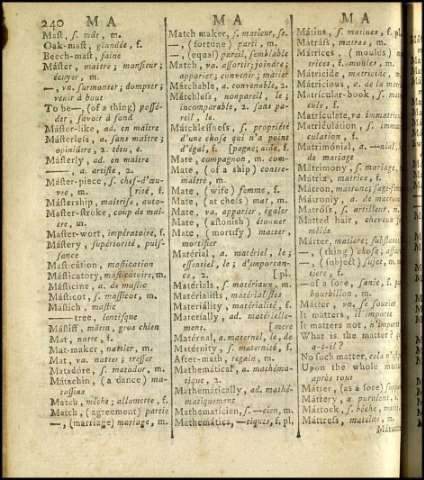 240 M A
M A
M A
Mast, s. mât, m.
Oak-mast, glandée, f.
Beech-mast, faîne
Máster, maître; monsieur;
écuyer, m.
—, va. surmonter; dompter;
venir à bout
To be— (of a thing) possé-
der, savoir à fond
Máster-like, ad. en maître
Másterless, a. sans maître;
opiniâtre, 2. têtu, e.
Másterly, ad. en maître
——, a. artiste, 2.
Máster-piece, s. chef-d'œu-
vre, m. [rité, f.
Mástership, maîtrise, auto-
Master-stroke, coup de maî-
tre, m.
Master-wort, impératoire, f.
Mástery, supériorité, puis-
sance
Mastication, mastication
Másticatory, masticatoire, m.
Másticine, a. de mastic
Másticot, s. massicot, m.
Mástich, mastic
——tree, lentisque
Mástiff, mâtin, gros chien
Mat, natte, f.
Mat-maker, nattier, m.
Mat, va. natter; tresser
Matadóre, s. matador, m.
Mátachin, (a dance) ma-
tassins
Match, mêche; allumette, f.
Match, (agreement) partie
—, (marriage) mariage, m.
Match maker, s. marieur, se.
—, (fortune) parti, m.
—, (equal) pareil, semblable
Match, va. assortir; joindre;
apparier; convenir; mâter
Mátchable, a. convenable, 2.
Mátchless, nonpareil, le;
incomparable, 2. sans pa-
reil, le.
Mátchlessness, s. propriété
d'une chose qui n'a point
d'égal, f. [pagne; aide, f.
Mate, compagnon, m. com-
Mate, (of a ship) contre-
maître, m.
Mate, (wife) femme, f.
Mate, (at chess) mat, m.
Mate, va. apparier, égaler
Mate, (astonish) étonner
Mate, (mortify) mater,
mortifier
Matérial, a. matériel, le;
essentiel, le; d'importan-
ce, 2. [pl.
Matérials, s. matériaux, m.
Matérialists, matérialistes
Materiálity, matérialité, f.
Materially, ad. matérielle-
ment. [mere
Matérnal, a. maternel, le, de
Matérnity, s. maternité, f.
After-math, regain, m.
Mathemátical, a. mathéma-
tique, 2.
Mathemátically, ad. mathé-
matiquement
Mathematícien, s. —cien, m.
Mathemátics, —tiques, f. pl.
Mátins, s. matines, f. pl.
Mátrass, matras, m.
Mátrices, (moulds)
trices, f.
Mátricide, matricide,
Matricious, a. de la
Matricular-book, s.
cule, f.
Matriculate, va. immatri
Matriculátion, s.
culation, f.
Matrimónial, a. —nial,
de mariage
Mátrimony, s. mariage,
Mátrix, matrice, f.
Mátron, matrone;
Matronly, a. de matrone
Matróss, s. artilleur,
Matted hair, cheveux
mêlés
Mátter, matiere;
—, (thing) chose,
—, (subject) sujet, m.
tiere, f.
—of a sore, sanie, f.
bourbillon, m.
Mátter, va. se soucier
It matters, il importe
It matters not, n'import
What is the matter?
a-t-il?
No such matter, cela n'est
Upon the whole
après tout
Mátter, (as a sore)
Máttery, a. purulent,
Máttock, s. bêche,
Máttress, matelas, m.